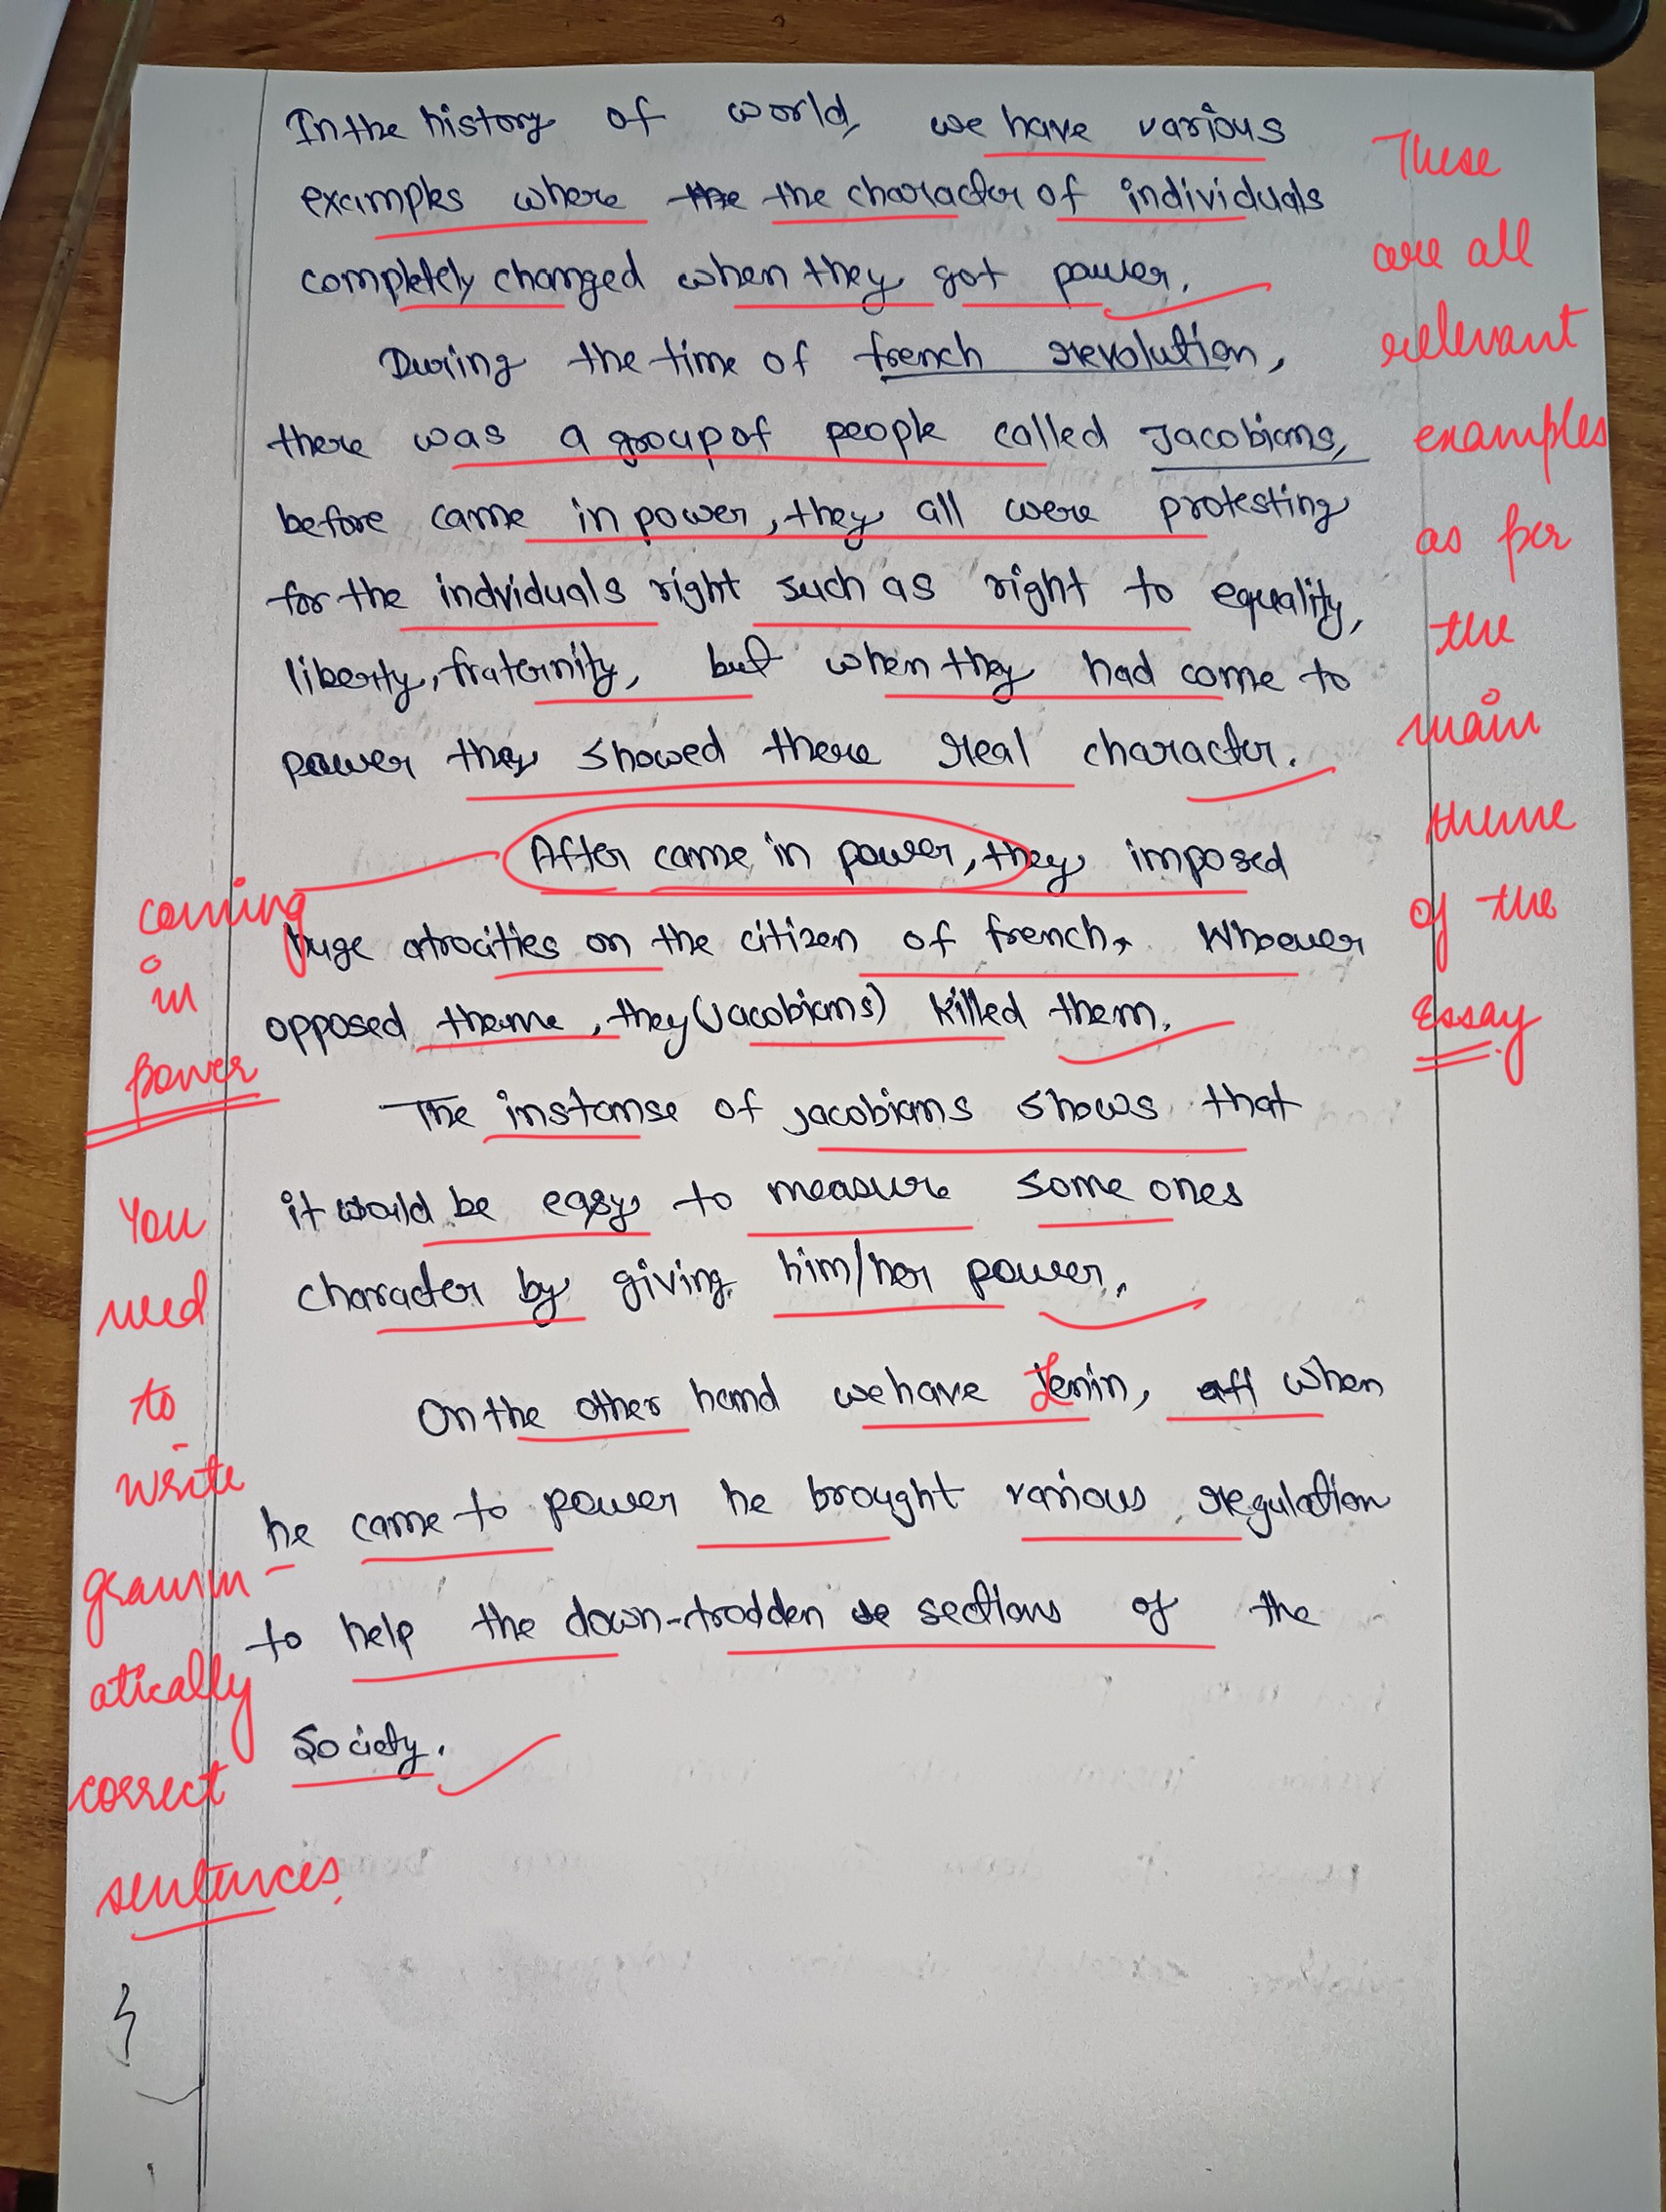 In the history of world, we have various
examples where the the character of individuals
completely changed when they got power.
During the time of french revolution,
there was a group of people called Jacobians,
before came in power, they all were protesting
for the indviduals right such as right to equality,
liberty, fraternity, but when they had come to
power they showed there real character.
After came in power, they imposed
huge atrocities on the citizen of french, Whoever
opposed theme, they (Jacobians) killed them.
The instanse of jacobians shows that
it would be easy to measure some ones
character by giving him/her power.
On the other hand we have Lenin, aff when
he came to power he brought various regulation
to help the down-trodden se sections of the
Society.
These
are all
relevant
examples
as per
the
main
theme
of the
Essay
coming
in
power
You
need
to
write
gramm-
atically
correct
sentences.